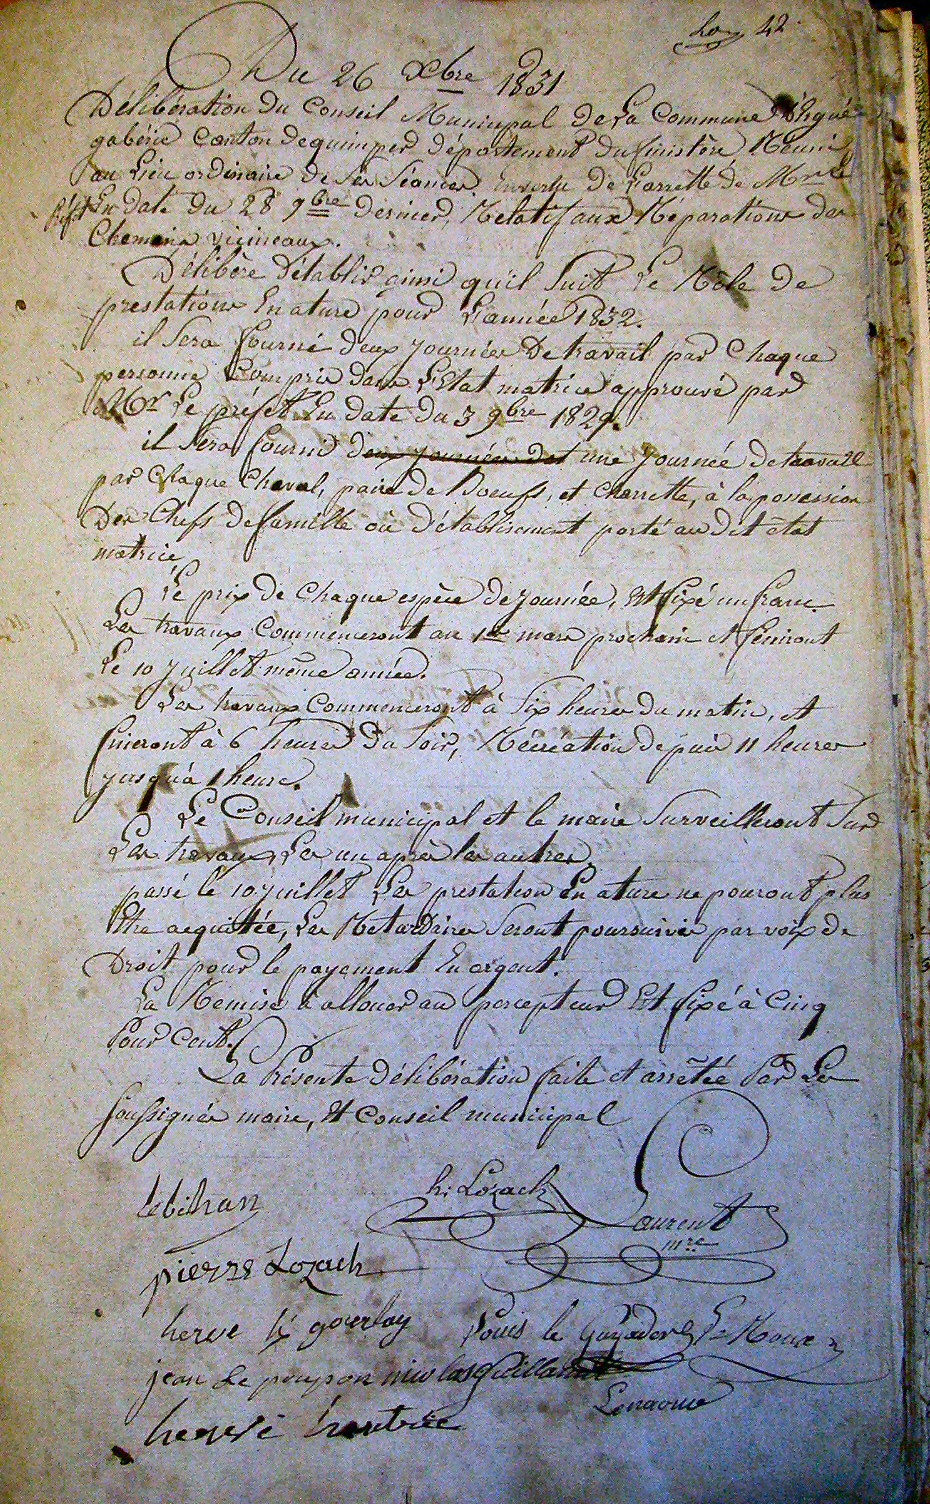 42
Du 26 Xbre 1831
Délibération du Conseil Municipal de La Commune d'Ergué
gabéric Canton de quimper département du finistère Réuni
au Lieu ordinaire de Ses Séances En vertu de L'arretté de Mr Le
Préft En date du 28 9bre dernier, Relatif aux Réparations des
Chemins vicineaux.
Délibère D'établir ainsi qu'il Suit Le Rôle de
prestations En nature pour L'année 1832.
il Sera fourni deux journées De travail par Chaque
personne Compris dans L'Etat matrice approuvé par
Mr Le préfet En date du 3 9bre 1829.
il Sera fourni deux journées de t une journée de travail
par Chaque Cheval, paire de Boeufs, et Charrette, à la possession
Des Chefs de famille où D'établissement porté au dit état
matrice
Le prix de Chaque espèce de journée, Est fixé un franc.
Les travaux Commenceront au 1er mars prochain et finiront
Le 10 juillet même année.
Les travaux Commenceront à Six heures du matin, et
finiront à 6 heures Du Soir, Récréation depuis 11 heures
jusqu'à 1 heure.
Le Conseil municipal et le maire Surveilleront Sur
Les travaux, Les un après les autres,
passé le 10 juillet Les prestation En ature ne pouront plus
Etre acquittée, Les Retardaires Seront poursuivis par voix de
Droit pour le payement En argent.
La Remise à allouer au percepteur Est fixé à Cinq
Pour Cent.
La Présente délibération faite et arrêtée Par Les
Soussignés maire, Et Conseil municipal
lebihan
h: Lozach
Laurent
mre
pierre Lozach
herve le gourlay
Louis le Guyader
Le Roux
jean Le poupon
nicolas Guillamet
Lenaour
hervé